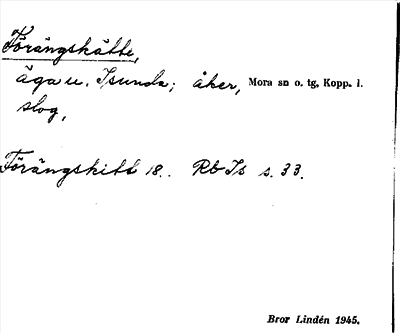 Förängskätte,
äga u. Isunda; åker, Mora sn o. tg, Kopp. l.
slog,
Förängskitt 18.. Rb Is s. 33.
Bror Lindén 1945.